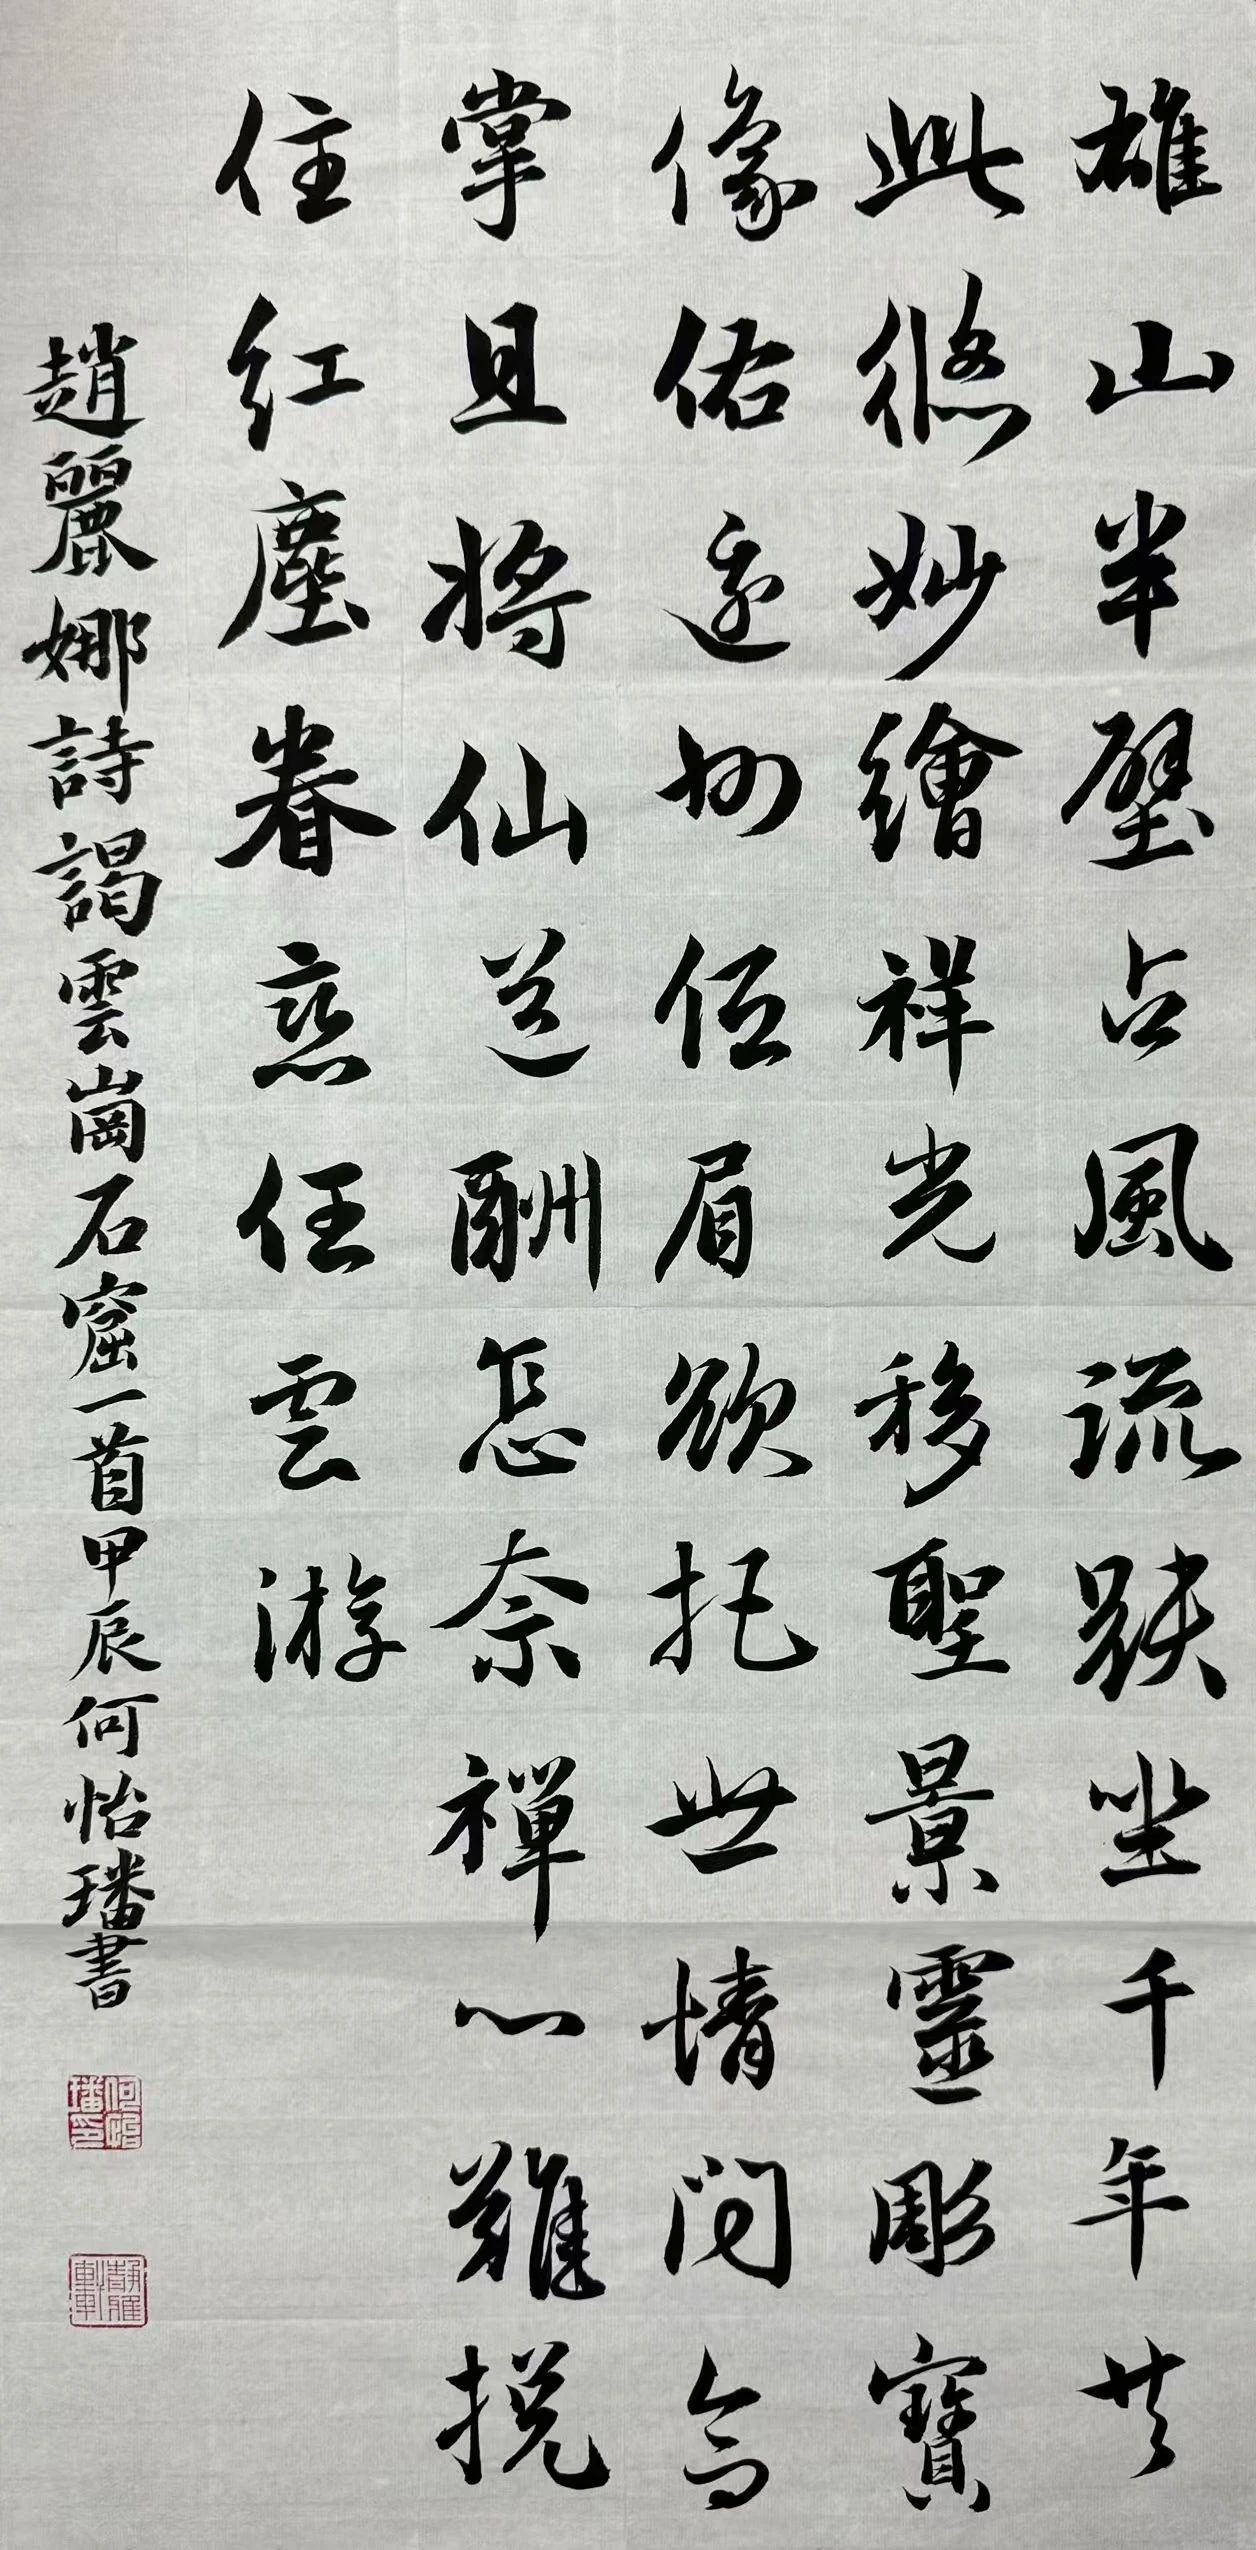 雄山半壁占風流趺坐千年共
此悠妙繪祥光移聖景靈彫寶
像佑邊州低眉欲托世情問合
掌且將仙道酬怎奈禪心難挽
住紅塵眷戀任雲游
趙麗娜詩謁雲崗石窟一首甲辰何怡璠書
何怡璠印